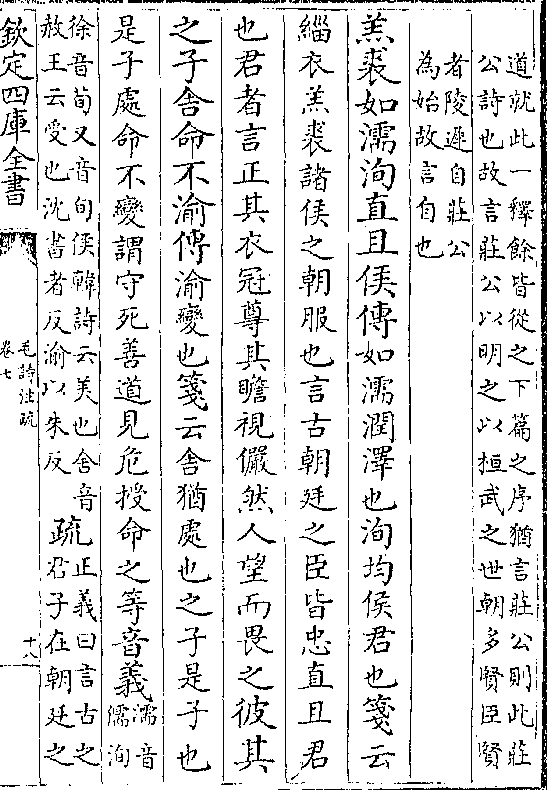 道就此一釋餘皆從之下篇之序猶言莊公則此莊
公詩也故言莊公以明之以桓武之世朝多賢臣賢
者陵遲自莊公
為始故言自也
羔裘如濡洵直且侯傳如濡潤澤也洵均侯君也箋云
緇衣羔裘諸侯之朝服也言古朝廷之臣皆忠直且君
也君者言正其衣冠尊其瞻視儼然人望而畏之彼其
之子舍命不渝傳渝變也箋云舍猶處也之子是子也
是子處命不變謂守死善道見危授命之等音義
濡音
儒洵
徐音荀又音旬侯韓詩云美也舍音
赦王云受也沈書者反渝以朱反
疏
正義曰言古之
君子在朝廷之
欽定四庫全書
毛詩注疏
卷七
十八